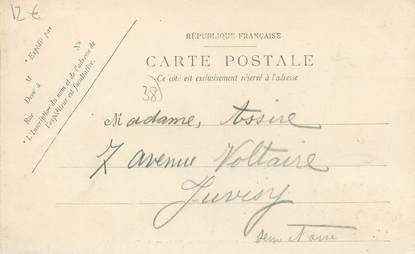 12 €
RÉPUBLIQUE FRANÇAISE
CARTE POSTALE
Ce côté est exclusivement réservé à l'adresse
* Expédié par
M
N°
Rue
Dem¹ à
* L'Inscription du nom et de l'adresse de
l'expéditeur est facultative.
38)
Madame, Assire
7 avenue Voltaire
Juvisy